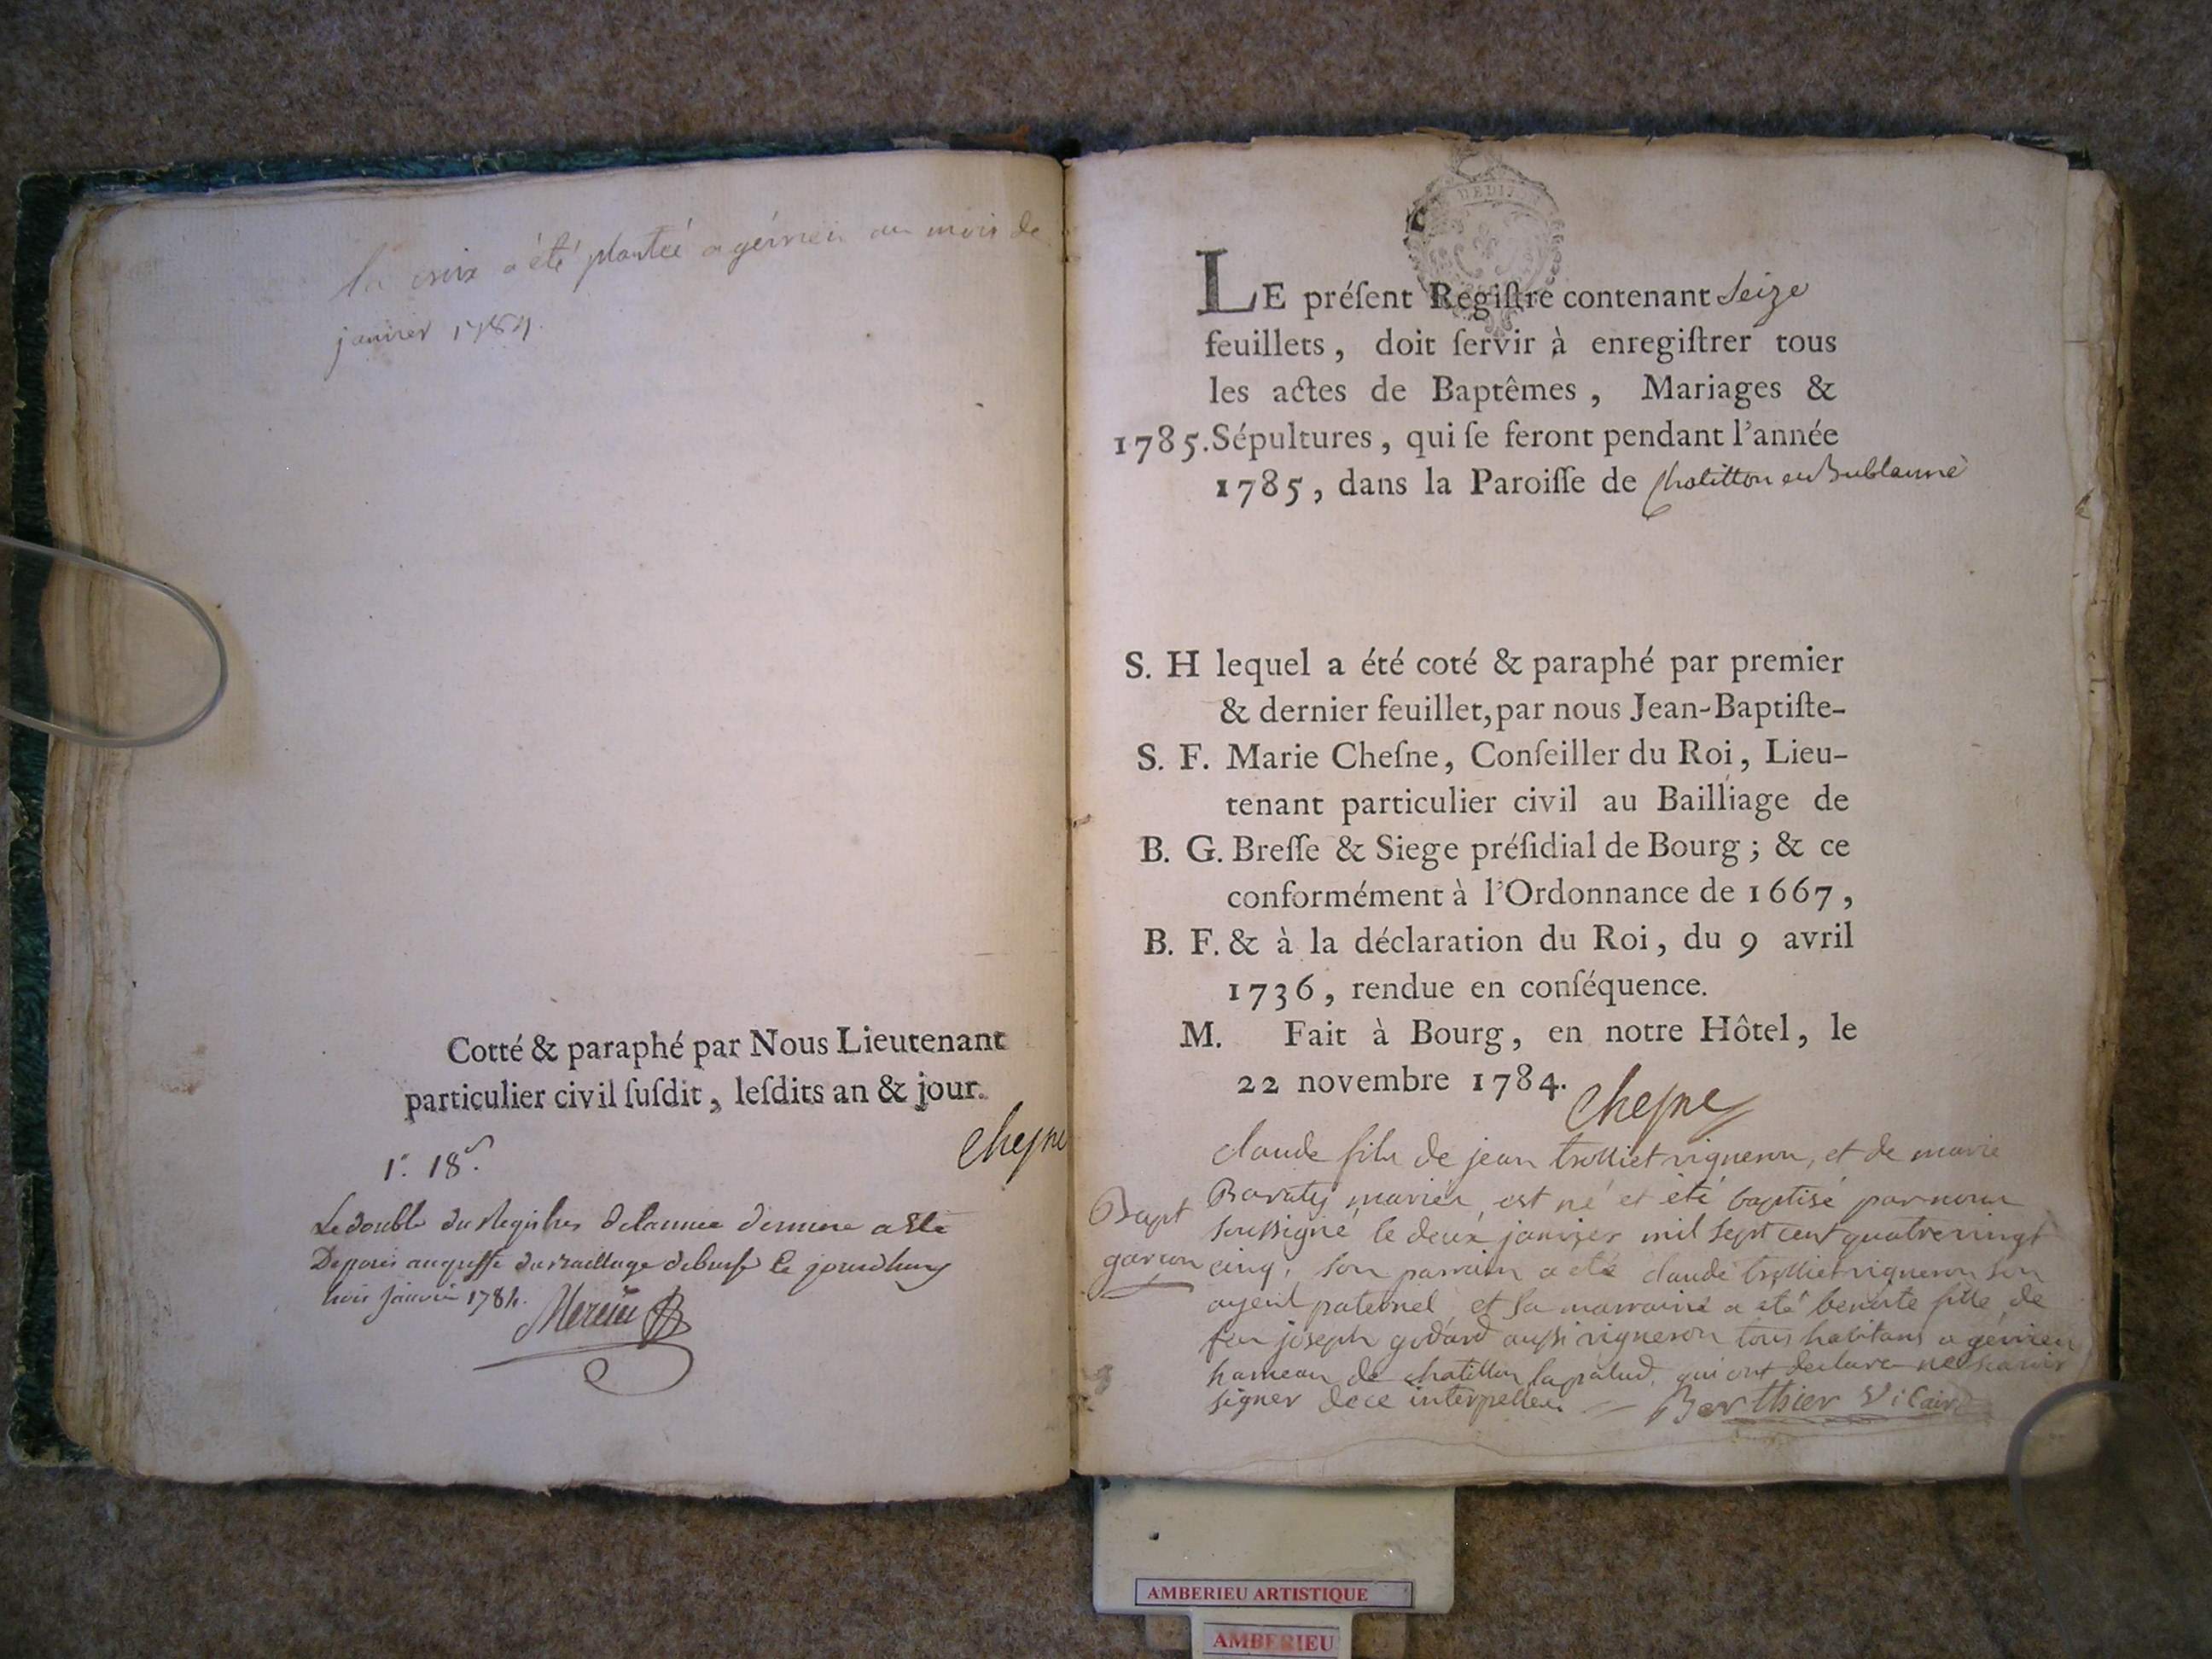 la croix a été plantée a gévrieu au mois de
janvier 1784.
Cotté & paraphé par Nous Lieutenant
particulier civil ſuſdit, leſdits an & jour.
Cheſne
1. 18.
Le double du Regiſtre de l'année derniere a été
Deposé au greffe du Bailliage de le jourdhuy
trois janvier 1784.
LE préſent Regiſtre contenant Seize
feuillets, doit ſervir à enregiſtrer tous
les actes de Baptêmes, Mariages &
1785. Sépultures, qui ſe feront pendant l'année
1785, dans la Paroiſſe de Chatillon
S. H lequel a été coté & paraphé par premier
& dernier feuillet, par nous Jean-Baptiſte-
S. F. Marie Cheſne, Conſeiller du Roi, Lieu-
tenant particulier civil au Bailliage de
B. G. Breſſe & Siege préſidial de Bourg; & ce
conformément à l'Ordonnance de 1667,
B. F. & à la déclaration du Roi, du 9 avril
1736, rendue en conſéquence.
M. Fait à Bourg, en notre Hôtel, le
22 novembre 1784.
Cheſne
Bapt
garcon
claude fils de jean trolliet vigneron, et de marie
mariés, est né et été baptisé par nous
soussigné le deux janvier mil sept cent quatre vingt
cinq, son parrain a été claude trolliet vigneron son
ayeul paternel, et sa marraine a été benoite fille de
feu joseph godard aussi vigneron tous habitans a gévrieu
hameau de chatillon lapalud, qui ont declaré ne scavoir
signer de ce interpellés. Berthier Vicaire
AMBERIEU ARTISTIQUE
AMBERIEU